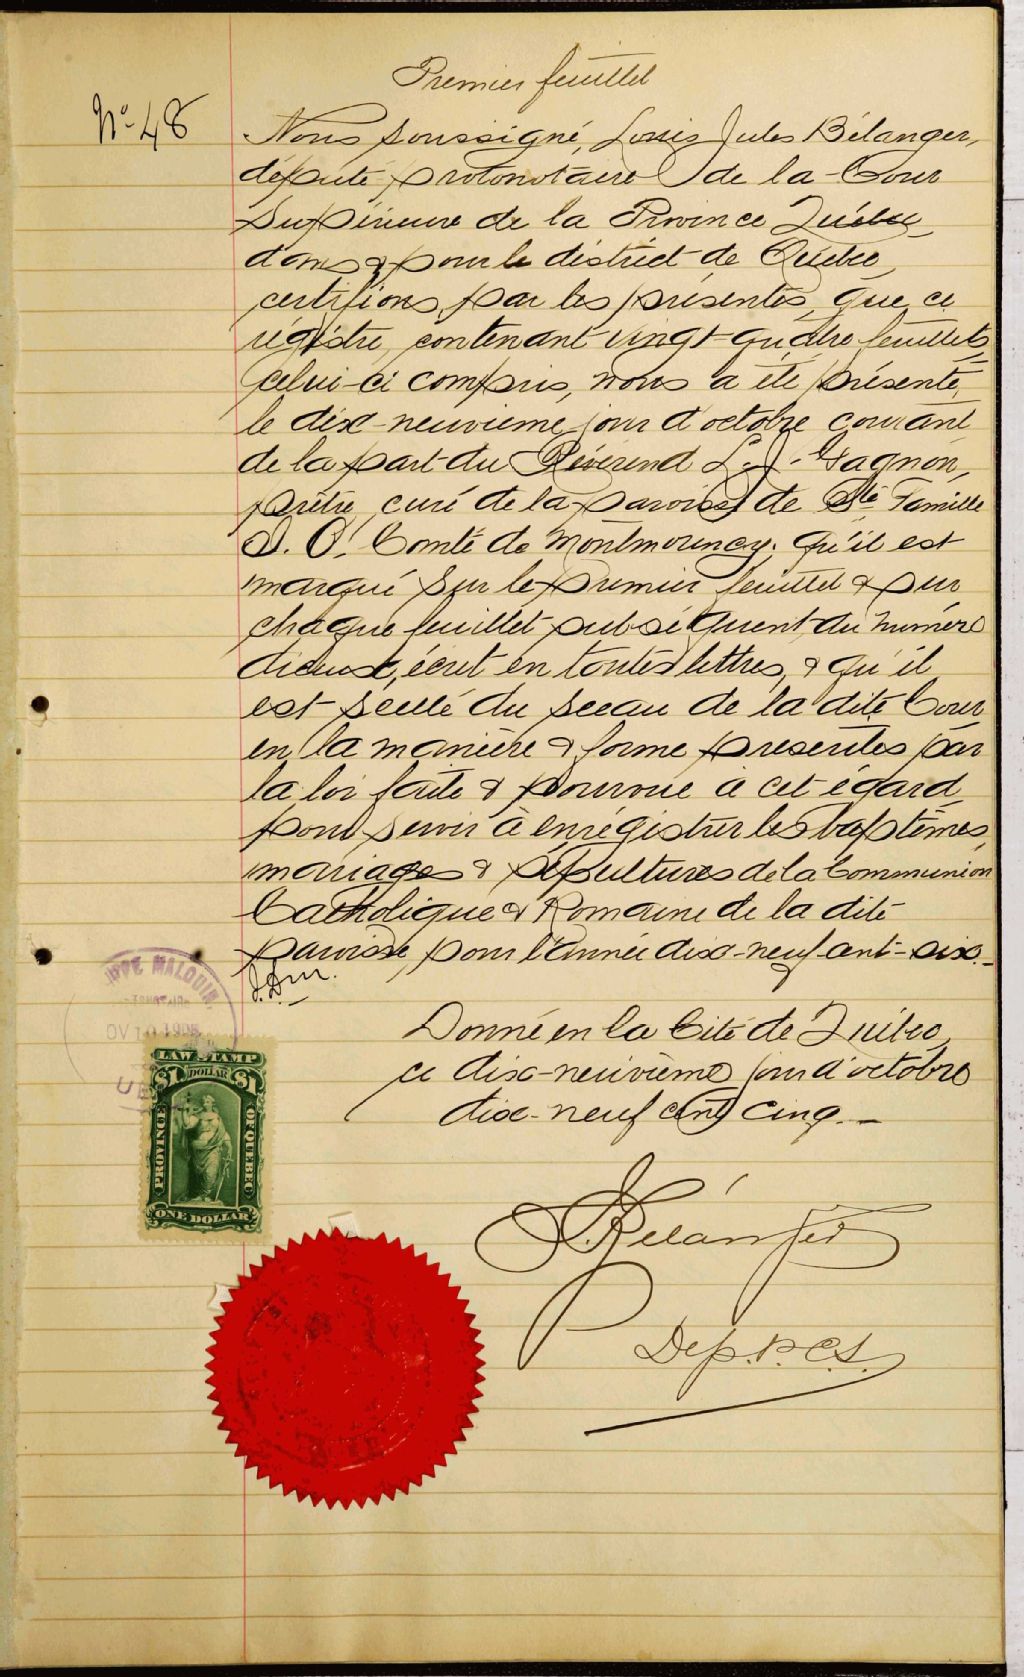 Premier feuillet
No 48
Nous soussigné, Louis Jules Bélanger,
député protonotaire de la Cour
Supérieure de la Province Québec
dans & pour le district de Québec,
certifions, par les présentes, que ce
régistre, contenant vingt-quatre feuillets,
celui-ci compris, nous a été présenté,
le dix-neuvième jour d'octobre courant
de la part du Révérend L. J. Gagnon,
prêtre, curé de la paroisse de Ste Famille
I. O. Comté de Montmorency; qu'il est
marqué sur le premier feuillet & sur
chaque feuillet subséquent du numéro
d'iceux, écrit en toutes lettres, & qu'il
est scellé du sceau de la dite Cour
en la manière & forme prescrites par
la loi faite & pourvue à cet égard,
pour servir à enrégistrer les baptêmes,
mariages & sépultures de la Communion
Catholique & Romaine de la dite
paroisse, pour l'année dix-neuf cent-six.
Donné en la Cité de Québec,
ce dix-neuvième jour d'octobre
dix-neuf cent cinq.
Bélanger
Dep. P. C. S.
MALOUIN
LAW STAMP
$1 DOLLAR $1
PROVINCE
OF QUEBEC
ONE DOLLAR